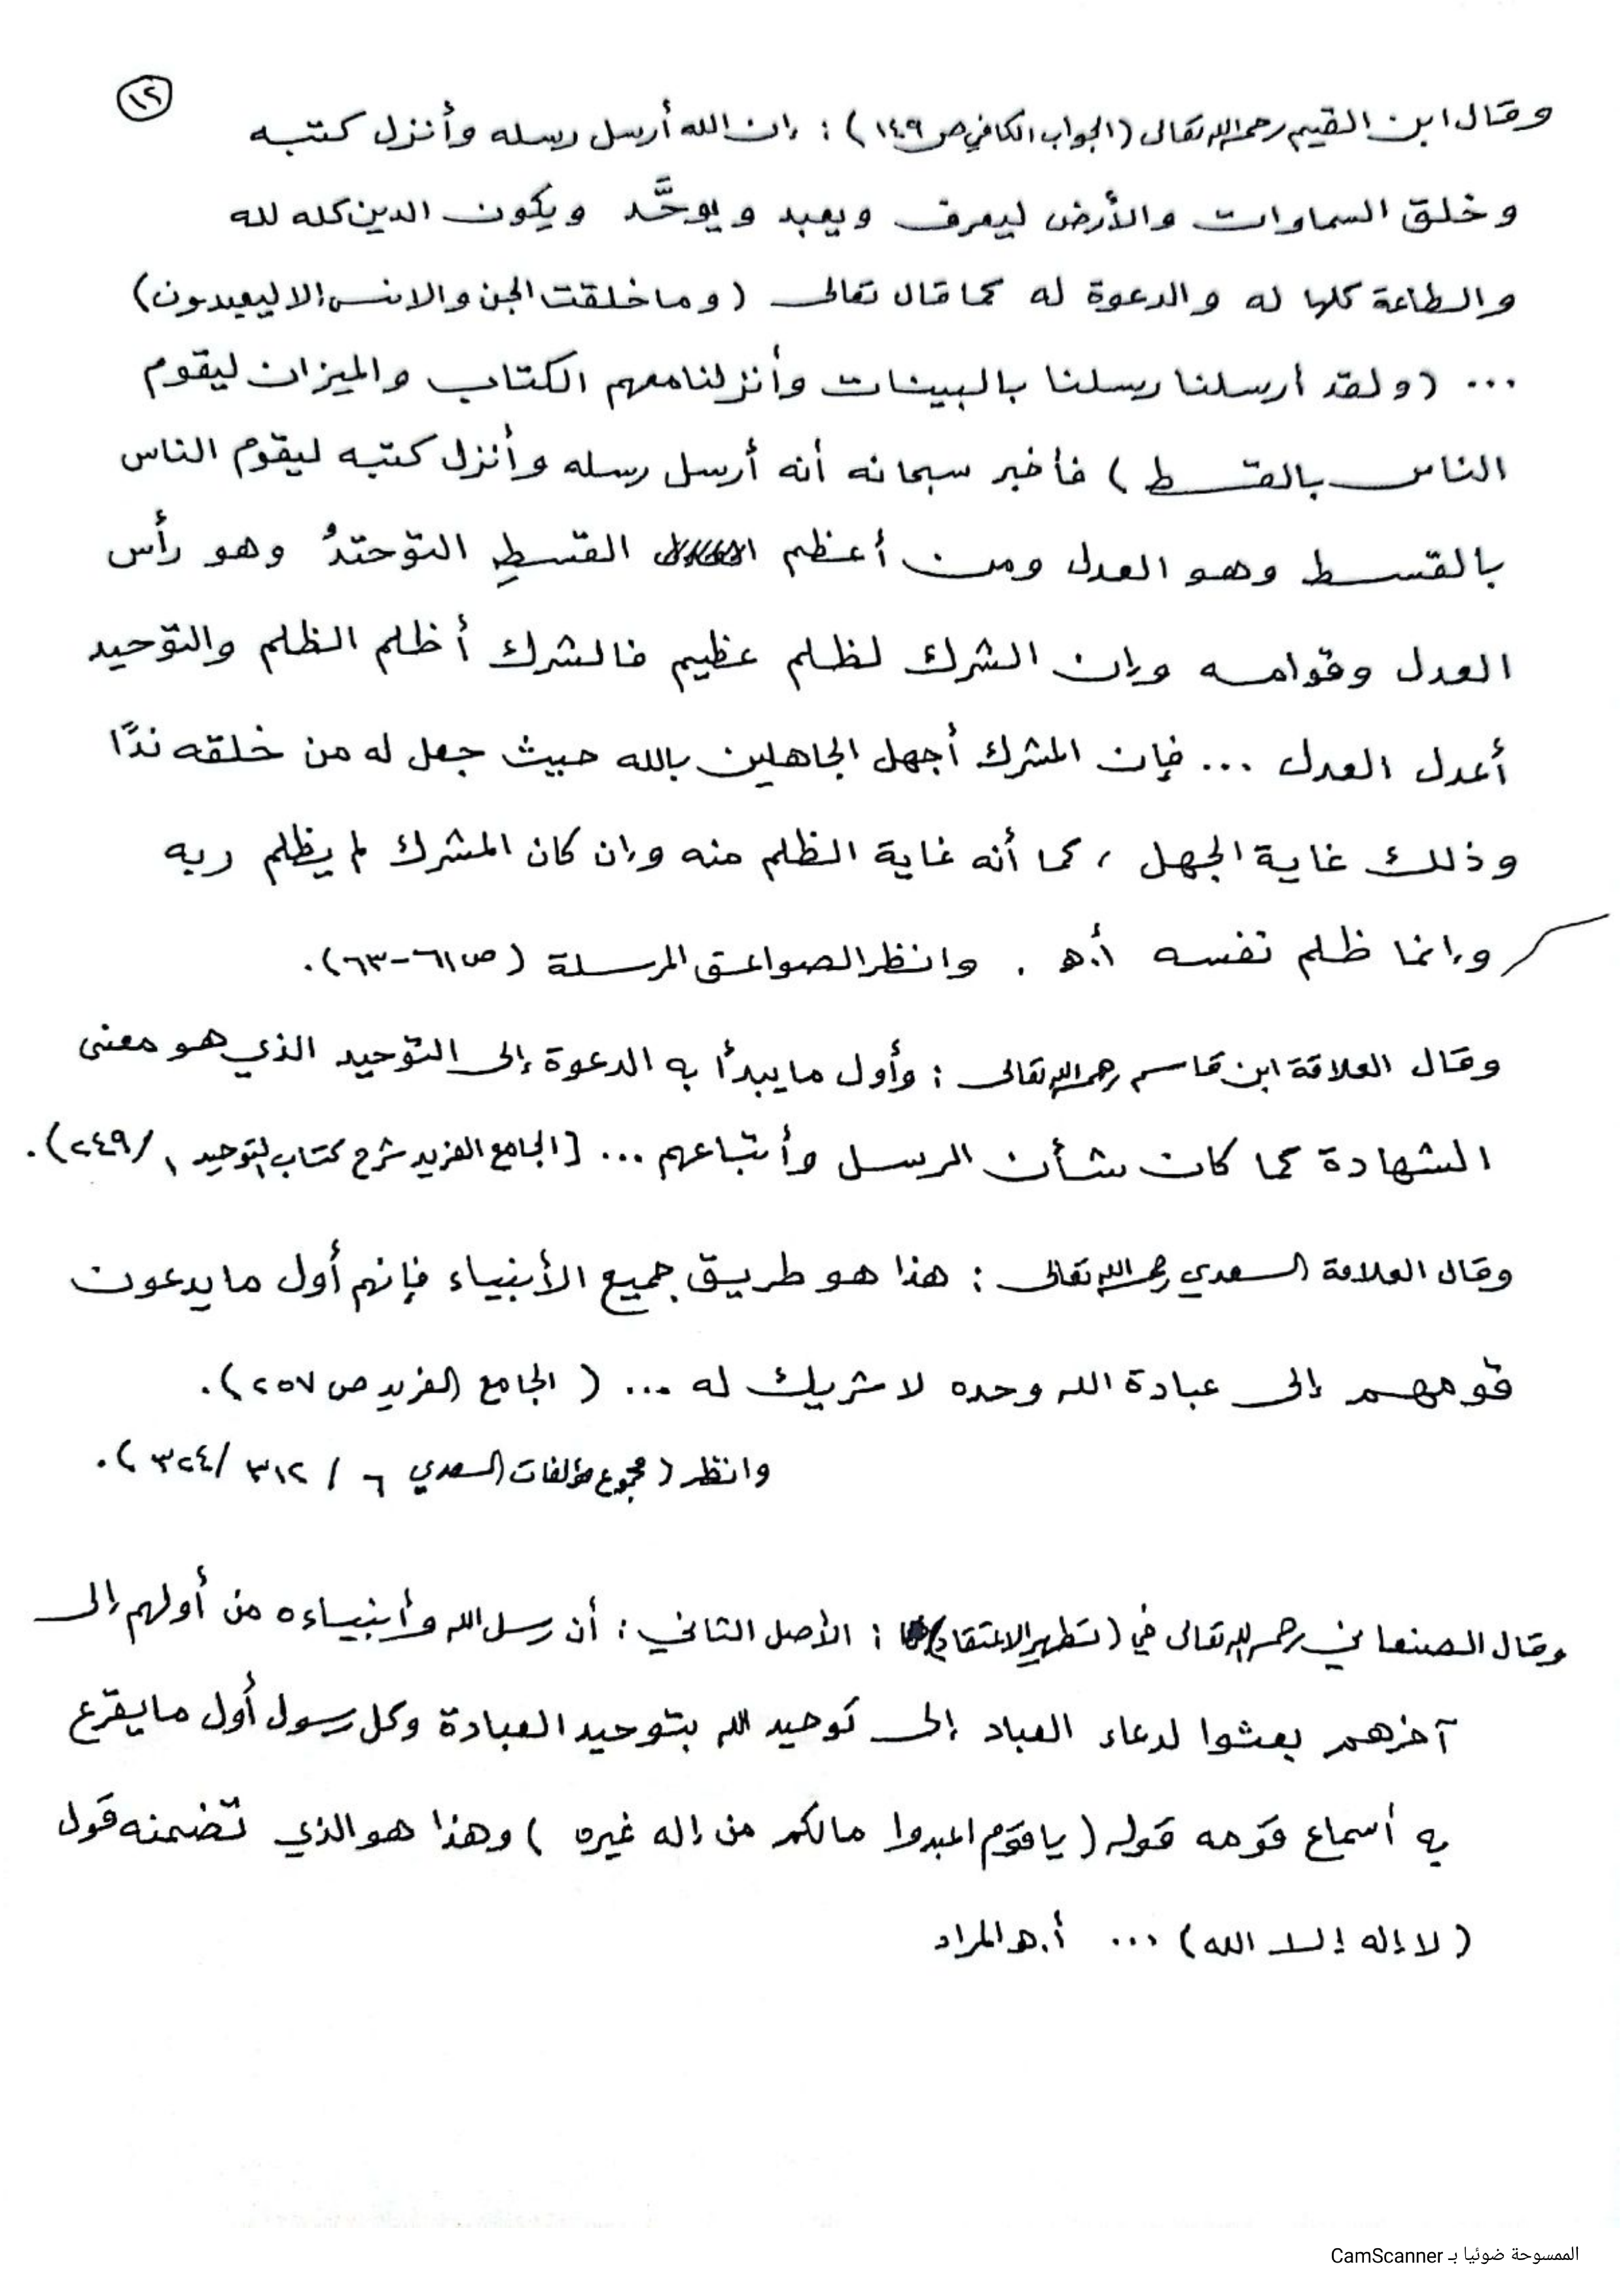 ١٢
وقال ابن القيم رحمه الله تعالى (الجواب الكافي ص ١٤٩) : إن الله أرسل رسله وأنزل كتبه
وخلق السماوات والأرض ليعرف ويعبد ويوحَّد ويكون الدين كله لله
والطاعة كلها له والدعوة له كما قال تعالى (وما خلقت الجن والانس إلا ليعبدون)
... (ولقد أرسلنا رسلنا بالبينات وأنزلنا معهم الكتاب والميزان ليقوم
الناس بالقسط) فأخبر سبحانه أنه أرسل رسله وأنزل كتبه ليقوم الناس
بالقسط وهو العدل ومن أعظم القسطِ التوحتدُ وهو رأس
العدل وقوامه وإن الشرك لظلم عظيم فالشرك أظلم الظلم والتوحيد
أعدل العدل ... فإن المشرك أجهل الجاهلين بالله حيث جعل له من خلقه ندًا
وذلك غاية الجهل ، كما أنه غاية الظلم منه وإن كان المشرك لم يظلم ربه
وإنما ظلم نفسه أ.هـ . وانظر الصواعق المرسلة (ص ٦١-٦٣).
وقال العلامة ابن قاسم رحمه الله تعالى : وأول ما يبدأ به الدعوة إلى التوحيد الذي هو معنى
الشهادة كما كان شأن الرسل وأتباعهم ... [الجامع الفريد شرح كتاب التوحيد ١/٢٤٩).
وقال العلامة السعدي رحمه الله تعالى : هذا هو طريق جميع الأنبياء فإنهم أول ما يدعون
قومهم إلى عبادة الله وحده لا شريك له ... (الجامع الفريد ص ٢٥٧).
وانظر (مجموع مؤلفات السعدي ٦ / ٣١٢/ ٣٢٤).
وقال الصنعاني رحمه الله تعالى في (تطهير الاعتقاد) : الأصل الثاني : أن رسل الله وأنبياءه من أولهم إلى
آخرهم بعثوا لدعاء العباد إلى توحيد الله بتوحيد العبادة وكل رسول أول ما يقرع
به أسماع قومه قوله (يا قوم اعبدوا مالكم من إله غيره) وهذا هو الذي تضمنه قول
(لا إله إلا الله) ... أ.هـ المراد
الممسوحة ضوئيا بـ CamScanner